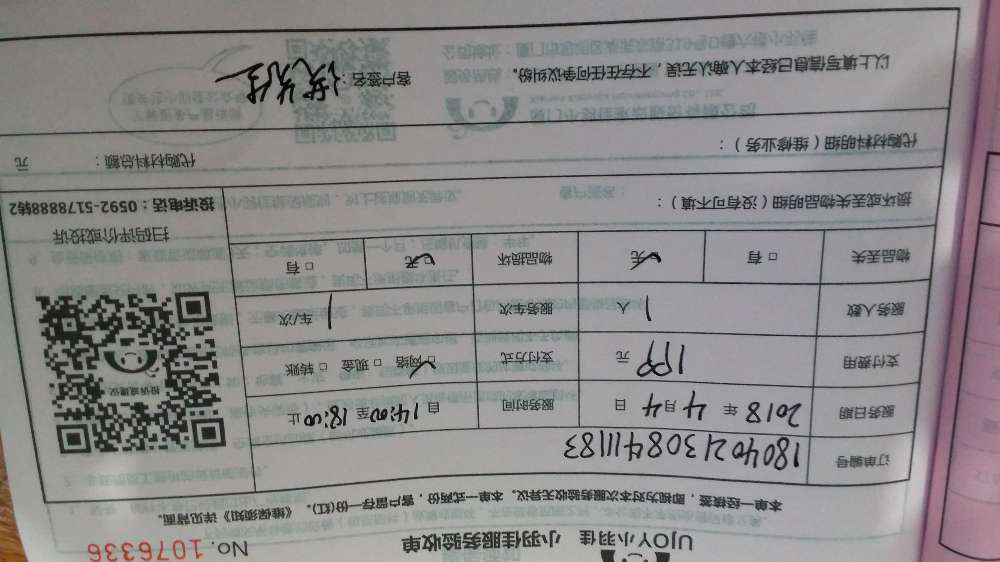 UJOY小羽佳 小羽佳服务验收单 No. 1076336
本单一经签核，即视为对本次服务验收无异议。本单一式两份，客户留存一份(红)。《维保须知》详见背面。
订单编号 180402130841183
服务日期 2018 年 4 月 4 日 服务时间 自 14:00 至 18:00 止
支付费用 199 元 支付方式 □网络 □现金 □转账
服务人数 1 人 服务车次 1 车/次
物品丢失 □有 □无 物品损坏 □无 □有
投诉或建议
扫码评价或投诉
投诉电话：0592-5178888转2
损坏或丢失物品明细（没有可不填）：
代购材料明细（维修业务）： 代购材料总额： 元
以上填写信息已经本人确认无误，不存在任何争议纠纷。 客户签名：